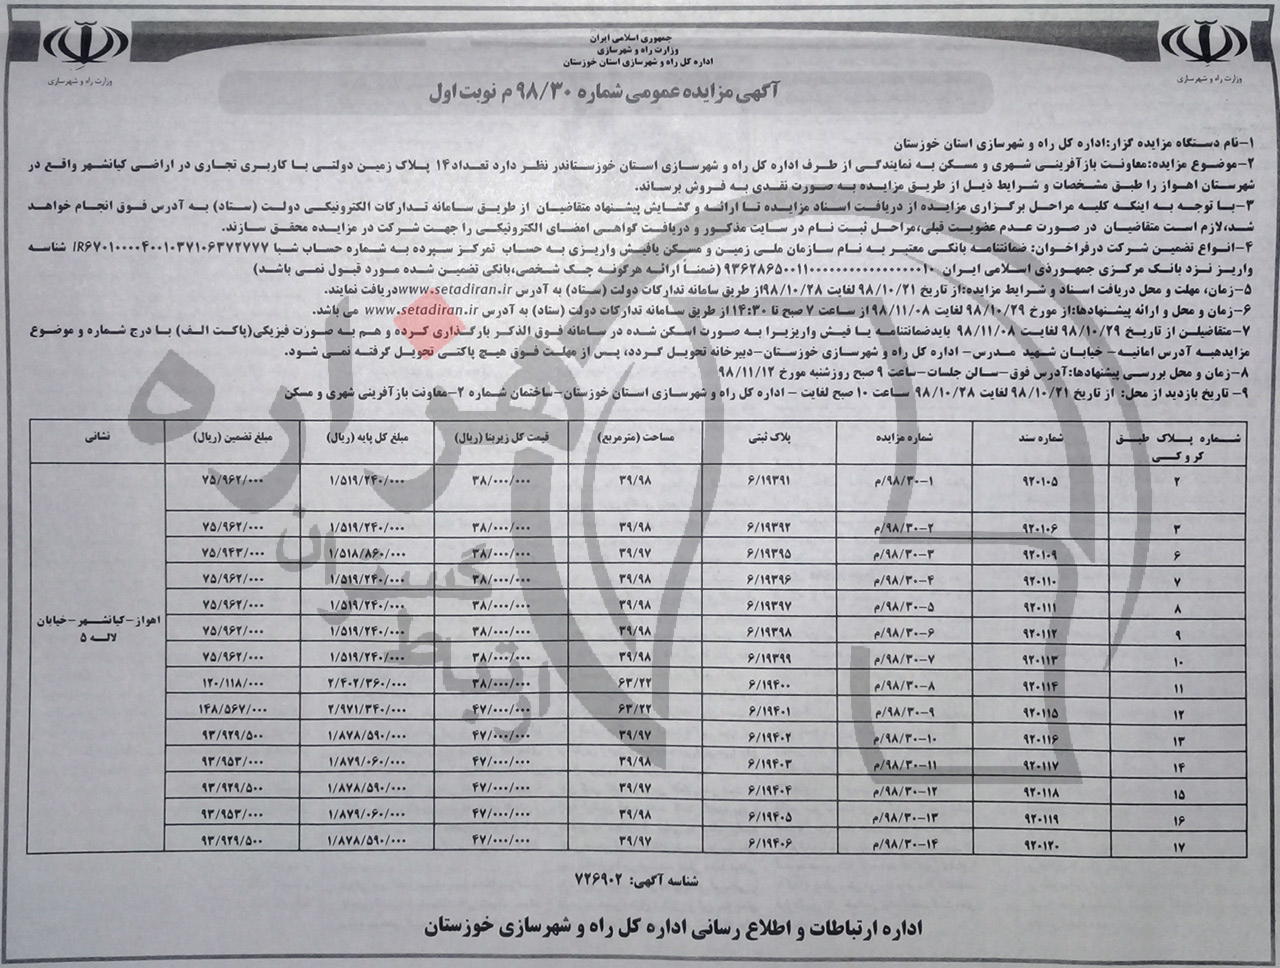 جمهوری اسلامی ایران
وزارت راه و شهرسازی
اداره کل راه و شهرسازی استان خوزستان
وزارت راه و شهرسازی
وزارت راه و شهرسازی
آگهی مزایده عمومی شماره ۹۸/۳۰ م نوبت اول
۱-نام دستگاه مزایده گزار:اداره کل راه و شهرسازی استان خوزستان
۲-موضوع مزایده:معاونت بازآفرینی شهری و مسکن به نمایندگی از طرف اداره کل راه و شهرسازی استان خوزستاندر نظر دارد تعداد۱۴ پلاک زمین دولتی با کاربری تجاری در اراضی کیانشهر واقع در
شهرستان اهواز را طبق مشخصات و شرایط ذیل از طریق مزایده به صورت نقدی به فروش برساند.
۳-با توجه به اینکه کلیه مراحل برگزاری مزایده از دریافت اسناد مزایده تا ارائه و گشایش پیشنهاد متقاضیان از طریق سامانه تدارکات الکترونیکی دولت (ستاد) به آدرس فوق انجام خواهد
شد،لازم است متقاضیان در صورت عدم عضویت قبلی،مراحل ثبت نام در سایت مذکور و دریافت گواهی امضای الکترونیکی را جهت شرکت در مزایده محقق سازند.
۴-انواع تضمین شرکت درفراخوان: ضمانتنامه بانکی معتبر به نام سازمان ملی زمین و مسکن یافیش واریزی به حساب تمرکز سپرده به شماره حساب شبا IR۶۷۰۱۰۰۰۰۴۰۰۱۰۳۷۱۰۶۳۷۲۷۷۷ شناسه
واریز نزد بانک مرکزی جمهوردی اسلامی ایران (ضمنا ارائه هرگونه چک شخصی،بانکی تضمین شده مورد قبول نمی باشد)
۵-زمان، مهلت و محل دریافت اسناد و شرایط مزایده:از تاریخ ۹۸/۱۰/۲۱ لغایت ۹۸/۱۰/۲۸از طریق سامانه تدارکات دولت (ستاد) به آدرس www.setadiran.irدریافت نمایند.
۶-زمان و محل و ارائه پیشنهادها: از مورخ ۹۸/۱۰/۲۹ لغایت ۹۸/۱۱/۰۸ از ساعت ۷ صبح تا ۱۴:۳۰از طریق سامانه تدارکات دولت (ستاد) به آدرس www.setadiran.ir می باشد.
۷-متقاضیلن از تاریخ ۹۸/۱۰/۲۹ لغایت ۹۸/۱۱/۰۸ بایدضمانتنامه یا فیش واریزیرا به صورت اسکن شده در سامانه فوق الذکر بارگذاری کرده و هم به صورت فیزیکی(پاکت الف) با درج شماره و موضوع
مزایدهبه آدرس امانیه- خیابان شهید مدرس- اداره کل راه و شهرسازی خوزستان-دبیرخانه تحویل گردد، پس از مهلت فوق هیچ پاکتی تحویل گرفته نمی شود.
۸-زمان و محل بررسی پیشنهادها: آدرس فوق-سالن جلسات-ساعت ۹ صبح روزشنبه مورخ ۹۸/۱۱/۱۲
۹- تاریخ بازدید از محل: از تاریخ ۹۸/۱۰/۲۱ لغایت ۹۸/۱۰/۲۸ ساعت ۱۰ صبح لغایت - اداره کل راه و شهرسازی استان خوزستان-ساختمان شماره ۲-معاونت بازآفرینی شهری و مسکن
شماره پلاک طبق کروکی شماره سند شماره مزایده پلاک ثبتی مساحت (مترمربع) قیمت کل زیربنا (ریال) مبلغ کل پایه (ریال) مبلغ تضمین (ریال) نشانی
۲ ۹۲۰۱۰۵ ۹۸/۳۰-۱/م ۶/۱۹۳۹۱ ۳۹/۹۸ ۳۸/۰۰۰/۰۰۰ ۱/۵۱۹/۲۴۰/۰۰۰ ۷۵/۹۶۲/۰۰۰
۳ ۹۲۰۱۰۶ ۹۸/۳۰-۲/م ۶/۱۹۳۹۲ ۳۹/۹۸ ۳۸/۰۰۰/۰۰۰ ۱/۵۱۹/۲۴۰/۰۰۰ ۷۵/۹۶۲/۰۰۰
۶ ۹۲۰۱۰۹ ۹۸/۳۰-۳/م ۶/۱۹۳۹۵ ۳۹/۹۷ ۳۸/۰۰۰/۰۰۰ ۱/۵۱۸/۸۶۰/۰۰۰ ۷۵/۹۴۳/۰۰۰
۷ ۹۲۰۱۱۰ ۹۸/۳۰-۴/م ۶/۱۹۳۹۶ ۳۹/۹۸ ۳۸/۰۰۰/۰۰۰ ۱/۵۱۹/۲۴۰/۰۰۰ ۷۵/۹۶۲/۰۰۰
۸ ۹۲۰۱۱۱ ۹۸/۳۰-۵/م ۶/۱۹۳۹۷ ۳۹/۹۸ ۳۸/۰۰۰/۰۰۰ ۱/۵۱۹/۲۴۰/۰۰۰ ۷۵/۹۶۲/۰۰۰
اهواز-کیانشهر-خیابان لاله ۵
۹ ۹۲۰۱۱۲ ۹۸/۳۰-۶/م ۶/۱۹۳۹۸ ۳۹/۹۸ ۳۸/۰۰۰/۰۰۰ ۱/۵۱۹/۲۴۰/۰۰۰ ۷۵/۹۶۲/۰۰۰
۱۰ ۹۲۰۱۱۳ ۹۸/۳۰-۷/م ۶/۱۹۳۹۹ ۳۹/۹۸ ۳۸/۰۰۰/۰۰۰ ۱/۵۱۹/۲۴۰/۰۰۰ ۷۵/۹۶۲/۰۰۰
۱۱ ۹۲۰۱۱۴ ۹۸/۳۰-۸/م ۶/۱۹۴۰۰ ۶۳/۲۲ ۳۸/۰۰۰/۰۰۰ ۲/۴۰۲/۳۶۰/۰۰۰ ۱۲۰/۱۱۸/۰۰۰
۱۲ ۹۲۰۱۱۵ ۹۸/۳۰-۹/م ۶/۱۹۴۰۱ ۶۳/۲۲ ۴۷/۰۰۰/۰۰۰ ۲/۹۷۱/۳۴۰/۰۰۰ ۱۴۸/۵۶۷/۰۰۰
۱۳ ۹۲۰۱۱۶ ۹۸/۳۰-۱۰/م ۶/۱۹۴۰۲ ۳۹/۹۷ ۴۷/۰۰۰/۰۰۰ ۱/۸۷۸/۵۹۰/۰۰۰ ۹۳/۹۲۹/۵۰۰
۱۴ ۹۲۰۱۱۷ ۹۸/۳۰-۱۱/م ۶/۱۹۴۰۳ ۳۹/۹۸ ۴۷/۰۰۰/۰۰۰ ۱/۸۷۹/۰۶۰/۰۰۰ ۹۳/۹۵۳/۰۰۰
۱۵ ۹۲۰۱۱۸ ۹۸/۳۰-۱۲/م ۶/۱۹۴۰۴ ۳۹/۹۷ ۴۷/۰۰۰/۰۰۰ ۱/۸۷۸/۵۹۰/۰۰۰ ۹۳/۹۲۹/۵۰۰
۱۶ ۹۲۰۱۱۹ ۹۸/۳۰-۱۳/م ۶/۱۹۴۰۵ ۳۹/۹۸ ۴۷/۰۰۰/۰۰۰ ۱/۸۷۹/۰۶۰/۰۰۰ ۹۳/۹۵۳/۰۰۰
۱۷ ۹۲۰۱۲۰ ۹۸/۳۰-۱۴/م ۶/۱۹۴۰۶ ۳۹/۹۷ ۴۷/۰۰۰/۰۰۰ ۱/۸۷۸/۵۹۰/۰۰۰ ۹۳/۹۲۹/۵۰۰
شناسه آگهی: ۷۲۶۹۰۲
اداره ارتباطات و اطلاع رسانی اداره کل راه و شهرسازی خوزستان
هزاره